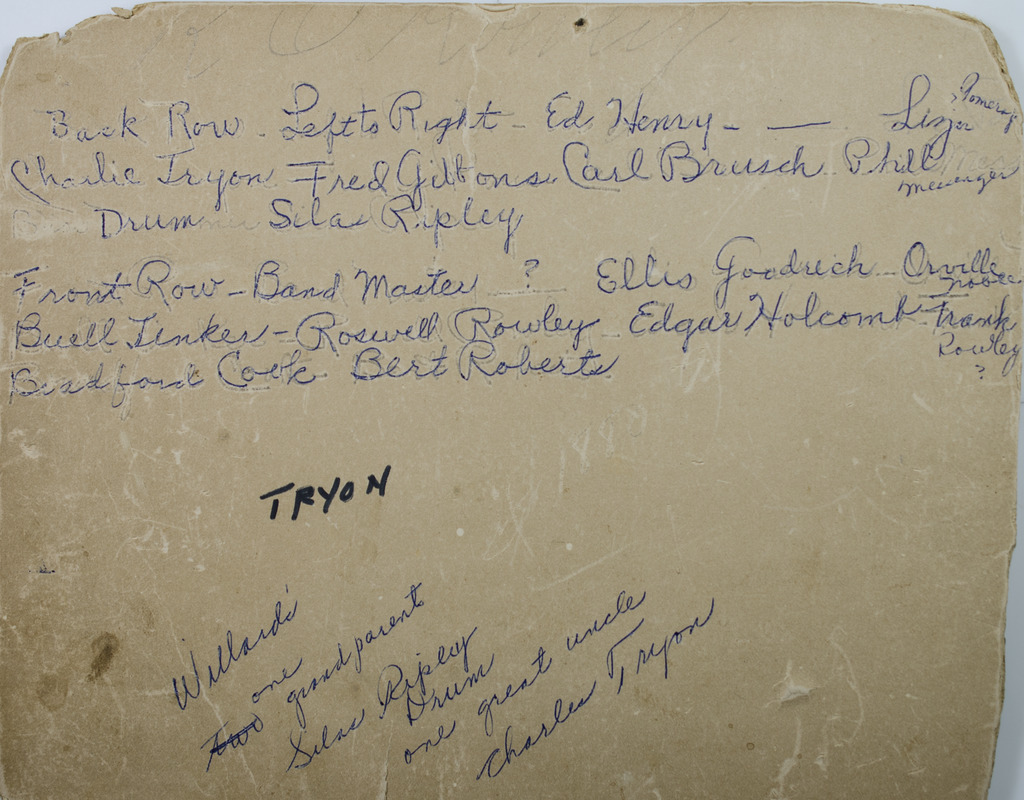 Back Row - Left to Right - Ed Henry - — Lizzer Pomeroy
Charlie Tryon Fred Gibbons Carl Brusch Phill Messenger
Drum Silas Ripley
Front Row - Band Master ? Ellis Goodrich - Orville
Buell Tinker - Roswell Rowley Edgar Holcomb - Frank Rowley ?
Bradford Cook Bert Roberts
TRYON
Willard's
one
two grandparents
Silas Ripley
Drum
one great uncle
Charles Tryon